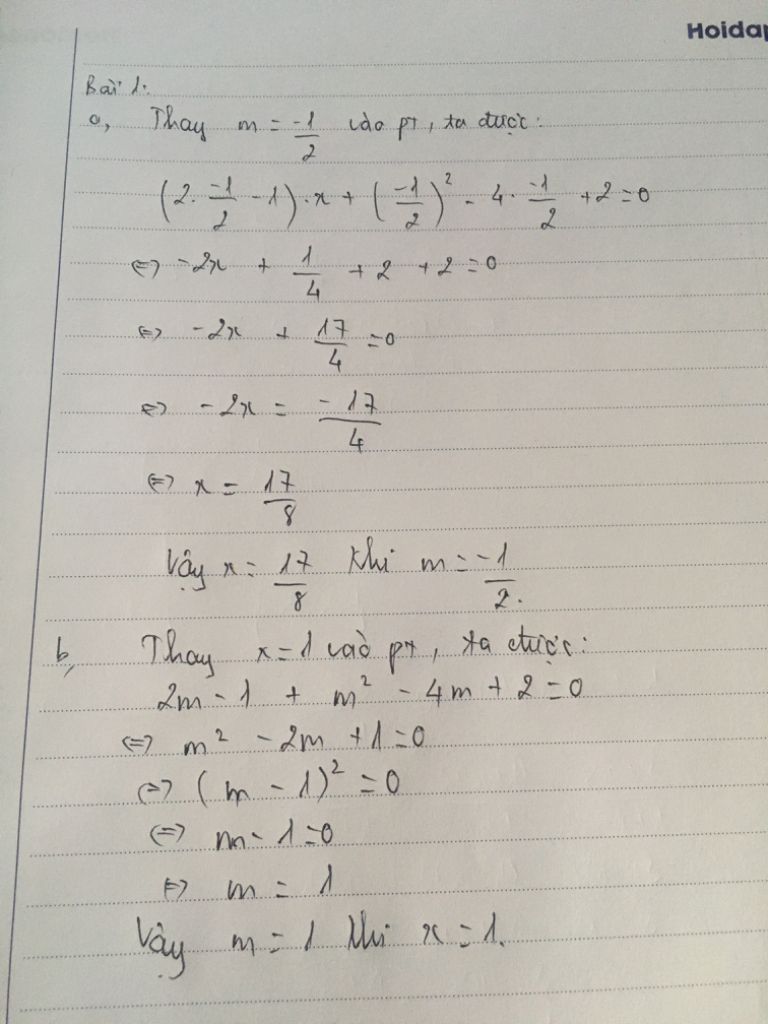 Hoidap
Bài 1.
a, Thay m = -1/2 vào pt, ta được:
(2. -1/2 - 1).x + (-1/2)² - 4. -1/2 + 2 = 0
⇔ -2x + 1/4 + 2 + 2 = 0
⇔ -2x + 17/4 = 0
⇔ -2x = -17/4
⇔ x = 17/8
Vậy x = 17/8 khi m = -1/2.
b, Thay x = 1 vào pt, ta được:
2m - 1 + m² - 4m + 2 = 0
⇔ m² - 2m + 1 = 0
⇔ (m - 1)² = 0
⇔ m - 1 = 0
⇔ m = 1
Vậy m = 1 khi x = 1.